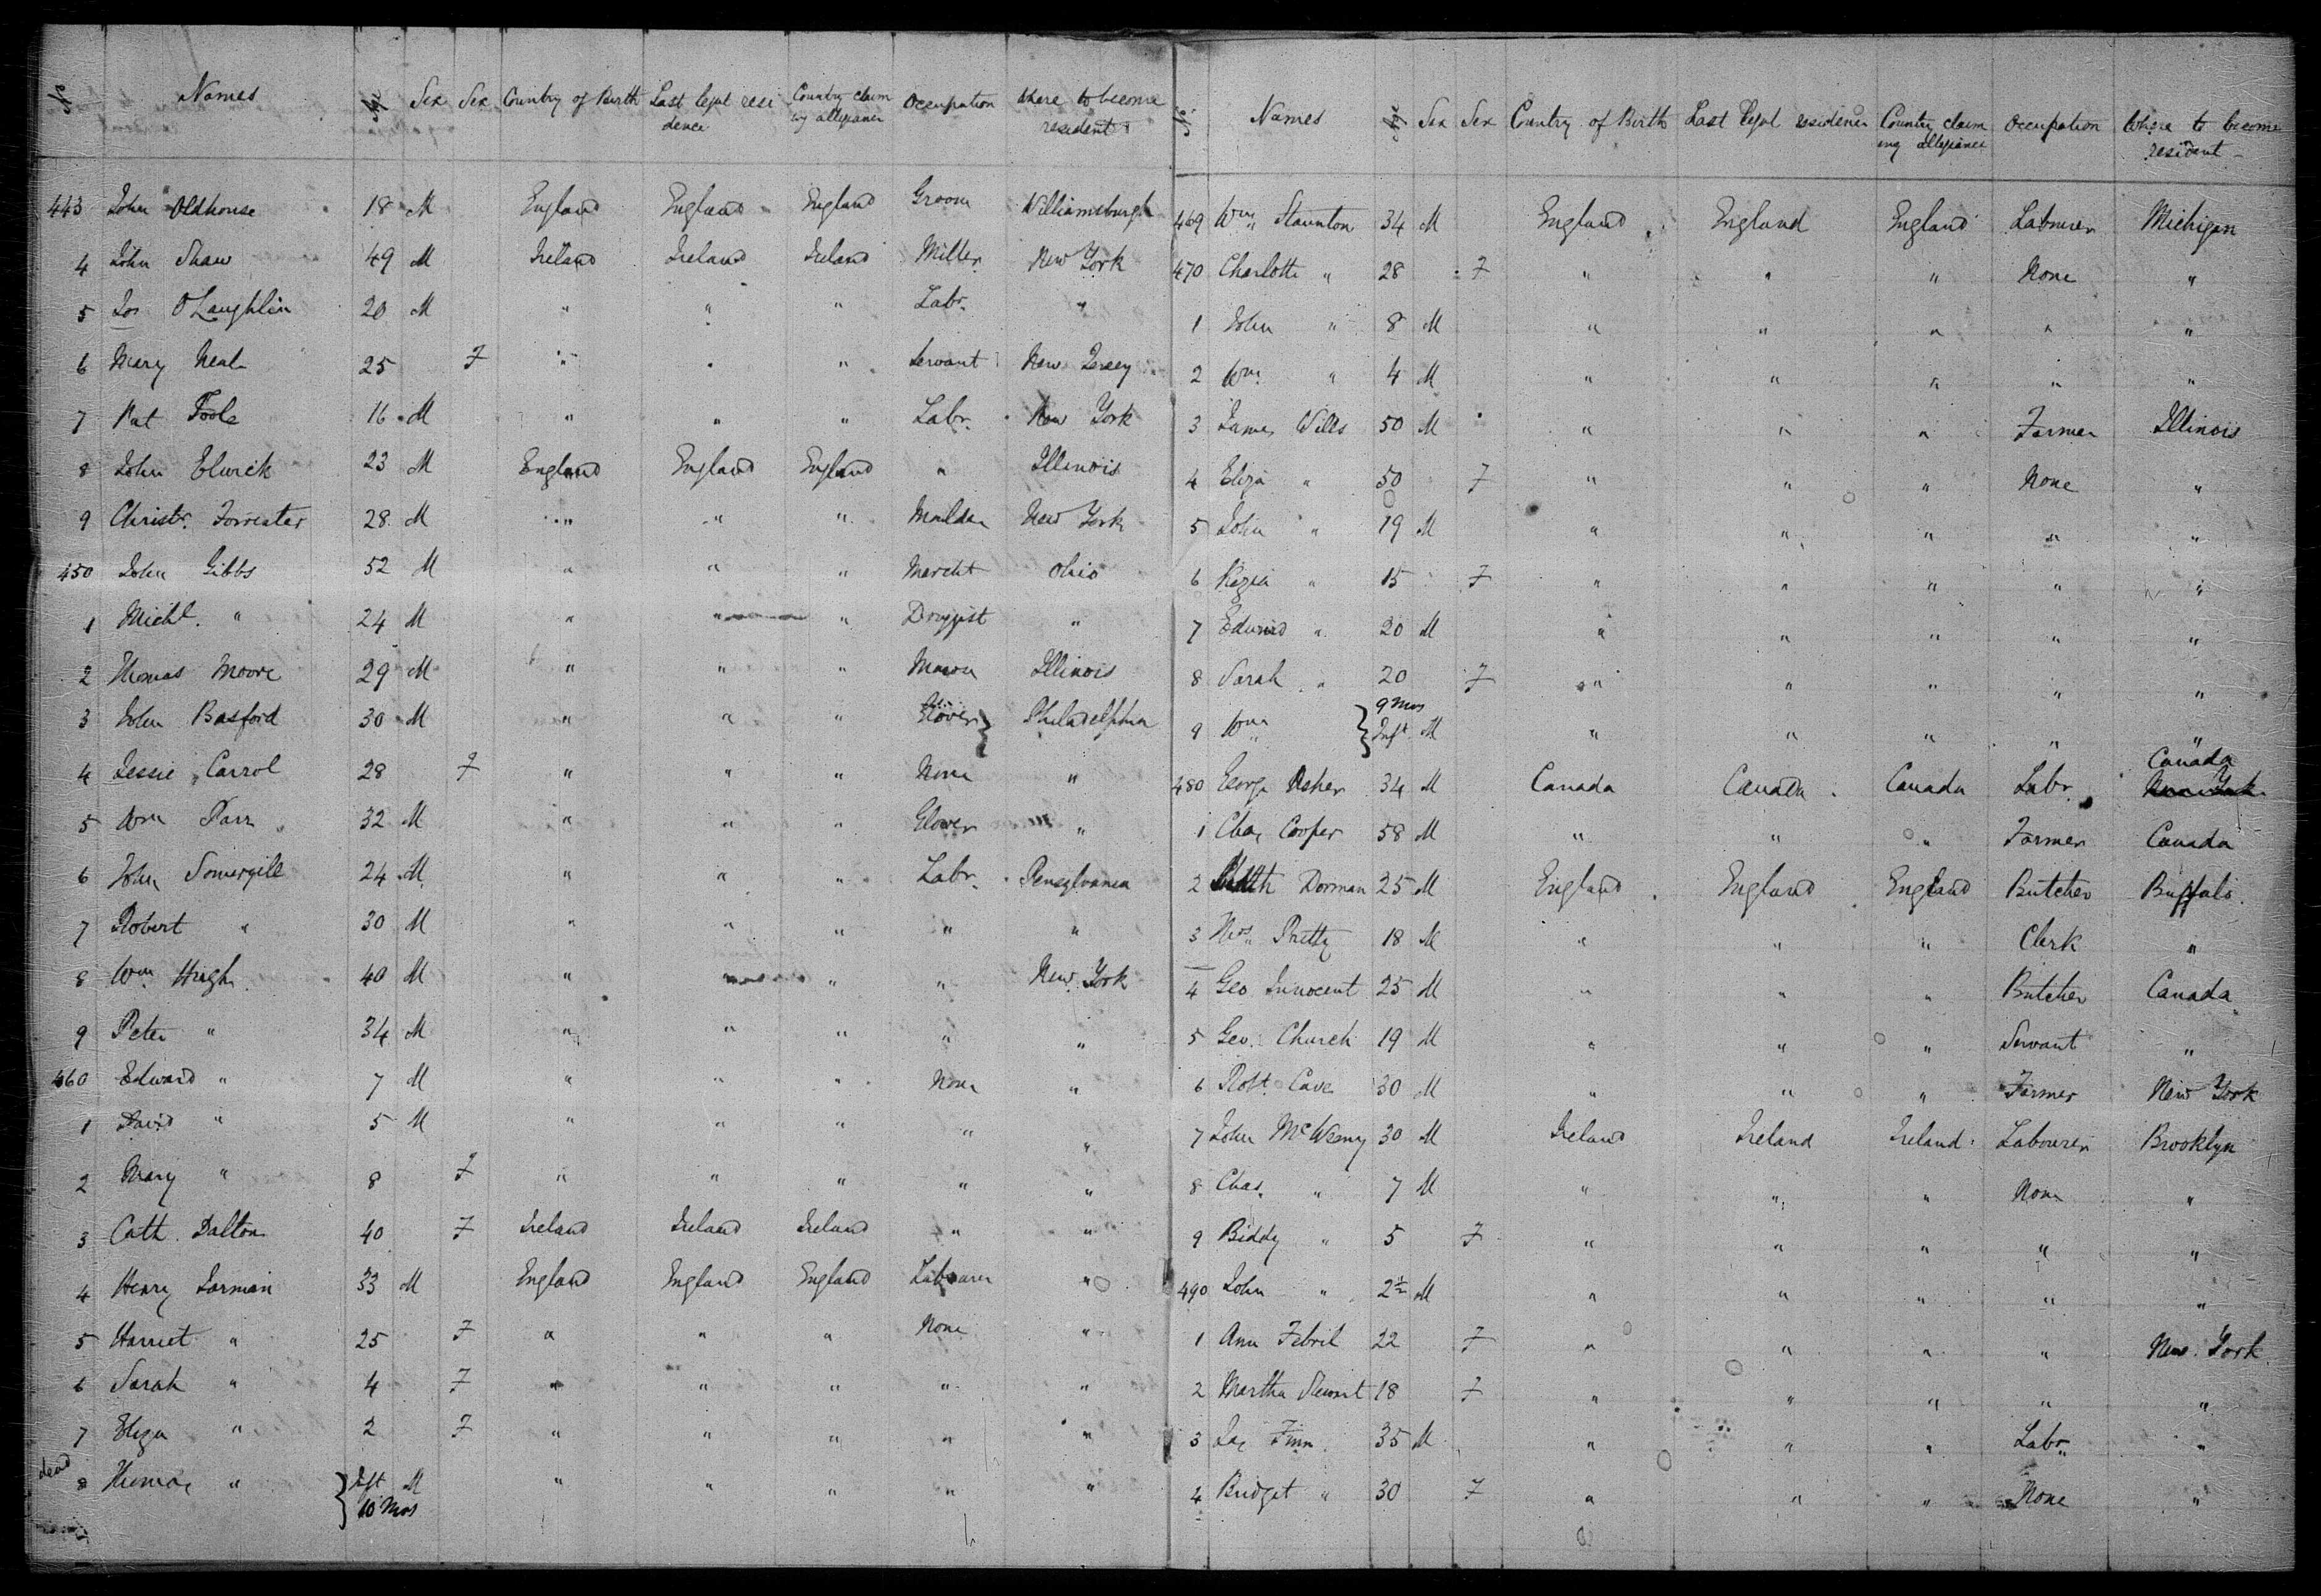 No Names Age Sex Sex Country of Birth Last legal resi Country claim Occupation Where to become
dence ing allegiance resident
443 John Oldhouse 18 M England England England Groom Williamsburgh
4 John Shaw 49 M Ireland Ireland Ireland Miller New York
5 Jos O'Laughlin 20 M " " " Labr. "
6 Mary Neal 25 F " " " Servant New Jersey
7 Pat Toole 16 M " " " Labr. New York
8 John Elwick 23 M England England England " Illinois
9 Christr. Forrester 28 M " " " Moulder New York
450 John Gibbs 52 M " " " Mercht Ohio
1 Michl. " 24 M " " " Druggist "
2 Thomas Moore 29 M " " " Mason Illinois
3 John Basford 30 M " " " Philadelphia
4 Jessie Carrol 28 F " " " None "
5 Wm Parr 32 M " " " Glover "
6 John Somergill 24 M " " " Labr. Pensylvania
7 Robert " 30 M " " " " "
8 Wm. Hugh 40 M " " " " New York
9 Peter " 34 M " " " " "
460 Edward " 7 M " " " None "
1 David " 5 M " " " " "
2 Mary " 8 F " " " " "
3 Cath. Dalton 40 F Ireland Ireland Ireland " "
4 Henry Jarman 33 M England England England Labourer "
5 Harriet " 25 F " " " None "
6 Sarah " 4 F " " " " "
7 Eliza " 2 F " " " " "
dead
8 Thomas " Inft M " " " " "
10 Mos
No. Names Age Sex Sex Country of Birth Last legal residence Country claim Occupation Where to become
ing allegiance resident
469 Wm. Staunton 34 M England England England Labourer Michigan
470 Charlotte " 28 F " " " None "
1 John " 8 M " " " " "
2 Wm. " 4 M " " " " "
3 James Wills 50 M " " " Farmer Illinois
4 Eliza " 50 F " " " None "
5 John " 19 M " " " " "
6 Kezia " 15 F " " " " "
7 Edward " 20 M " " " " "
8 Sarah " 20 F " " " " "
9 Mos
9 Wm " Inft M " " " " "
Canada
480 George Usher 34 M Canada Canada Canada Labr. New York
1 Chas Cooper 58 M " " " Farmer Canada
2 Dorman 25 M England England England Butcher Buffalo
3 Pretty 18 M " " " Clerk "
4 Geo Innocent 25 M " " " Butcher Canada
5 Geo. Church 19 M " " " Servant "
6 Robt. Cave 30 M " " " Farmer New York
7 John 30 M Ireland Ireland Ireland Labourer Brooklyn
8 Chas. " 7 M " " " None "
9 Biddy " 5 F " " " " "
490 John " 2½ M " " " " "
1 Ann Febril 22 F " " " " New York
2 Martha Stewart 18 F " " " " "
3 Jas Finn 35 M " " " Labr. "
4 Bridget " 30 F " " " None "